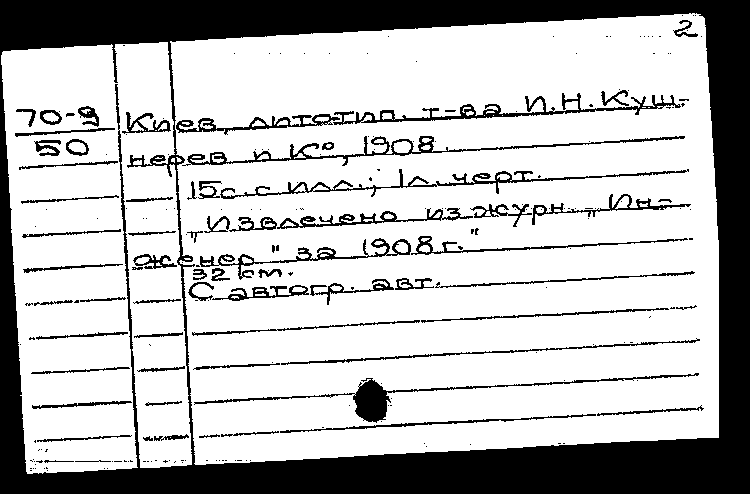 2
70-9
50
Киев, литотип. т-ва И.Н. Куш-
нерев и К°, 1908.
15с. с илл.; 1л. черт.
„Извлечено из журн. „Ин-
женер" за 1908г."
32 см.
С автогр. авт.